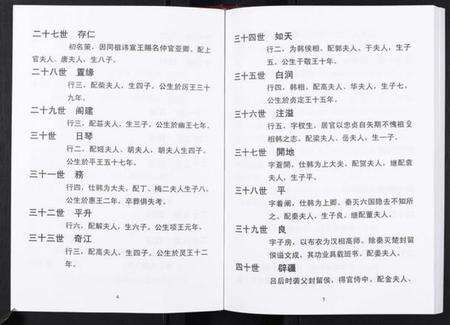 二十七世　存仁
初名策，因同祖讳宣王赐名仲官亚卿，配上
官夫人、唐夫人，生八子。
二十八世　置缘
行三，配柴夫人，生四子，公生於厉王三十
九年。
二十九世　阁建
行三，配苴夫人，生三子。公生於幽王七年。
三十世　日琴
行二，配姬夫人、胡夫人，胡夫人生四子。
公生於平王五十七年。
三十一世　務
行四，仕韩为大夫，配丁、梅二夫人生子八，
公生於惠王二年，卒葬俱失考。
三十二世　平升
行六，配解夫人，生六子，公生项王元年。
三十三世　奇江
行三，配高夫人，生四子，公生於灵王十二
年。
4
三十四世　如天
行二，为韩侯相，配郭夫人、于夫人，生子
五，公生于敬王十年。
三十五世　白润
行四，韩相，配高夫人、华夫人，生子七，
公生於贞定王十五年。
三十六世　注溢
行五，字权生，居官以忠贞自矢期不愧祖
相韩之志。配梁夫人、岳夫人，生一子。
三十七世　開地
字萱開，仕韩为上大夫，配贺夫人，继配袁
夫人，生子平。
三十八世　平
字着阑，仕韩为上卿，秦灭六国隐去不知所
之。配秦夫人，生子良，继配董夫人。
三十九世　良
字子房，以布衣为汉相高师，除秦灭楚封留
侯谥文成，其功业具载班书，配姜夫人。
四十世　辟疆
吕后时袭父封留侯，得官侍中，配金夫人，
5